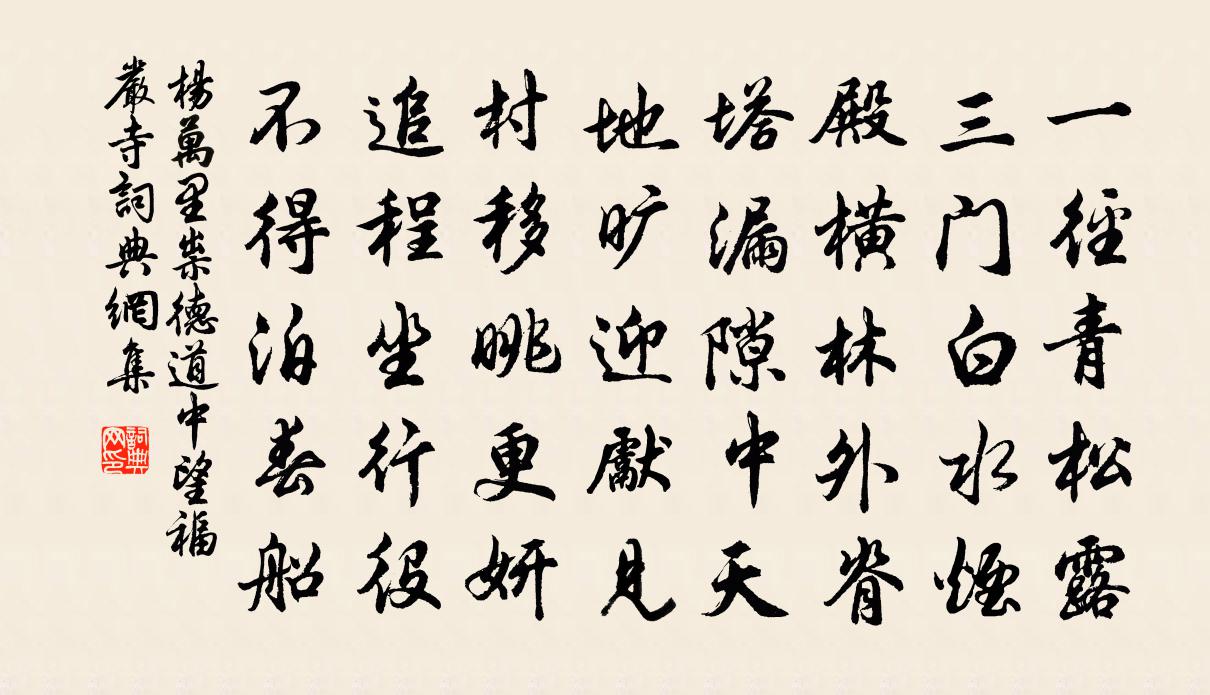 一徑青松露
三门白水煙
殿橫林外脊
塔漏隙中天
地旷迎獻見
村移眺更妍
追程坐行役
不得泊春船
楊萬里崇德道中望福
嚴寺詞典網集
詞典
网印